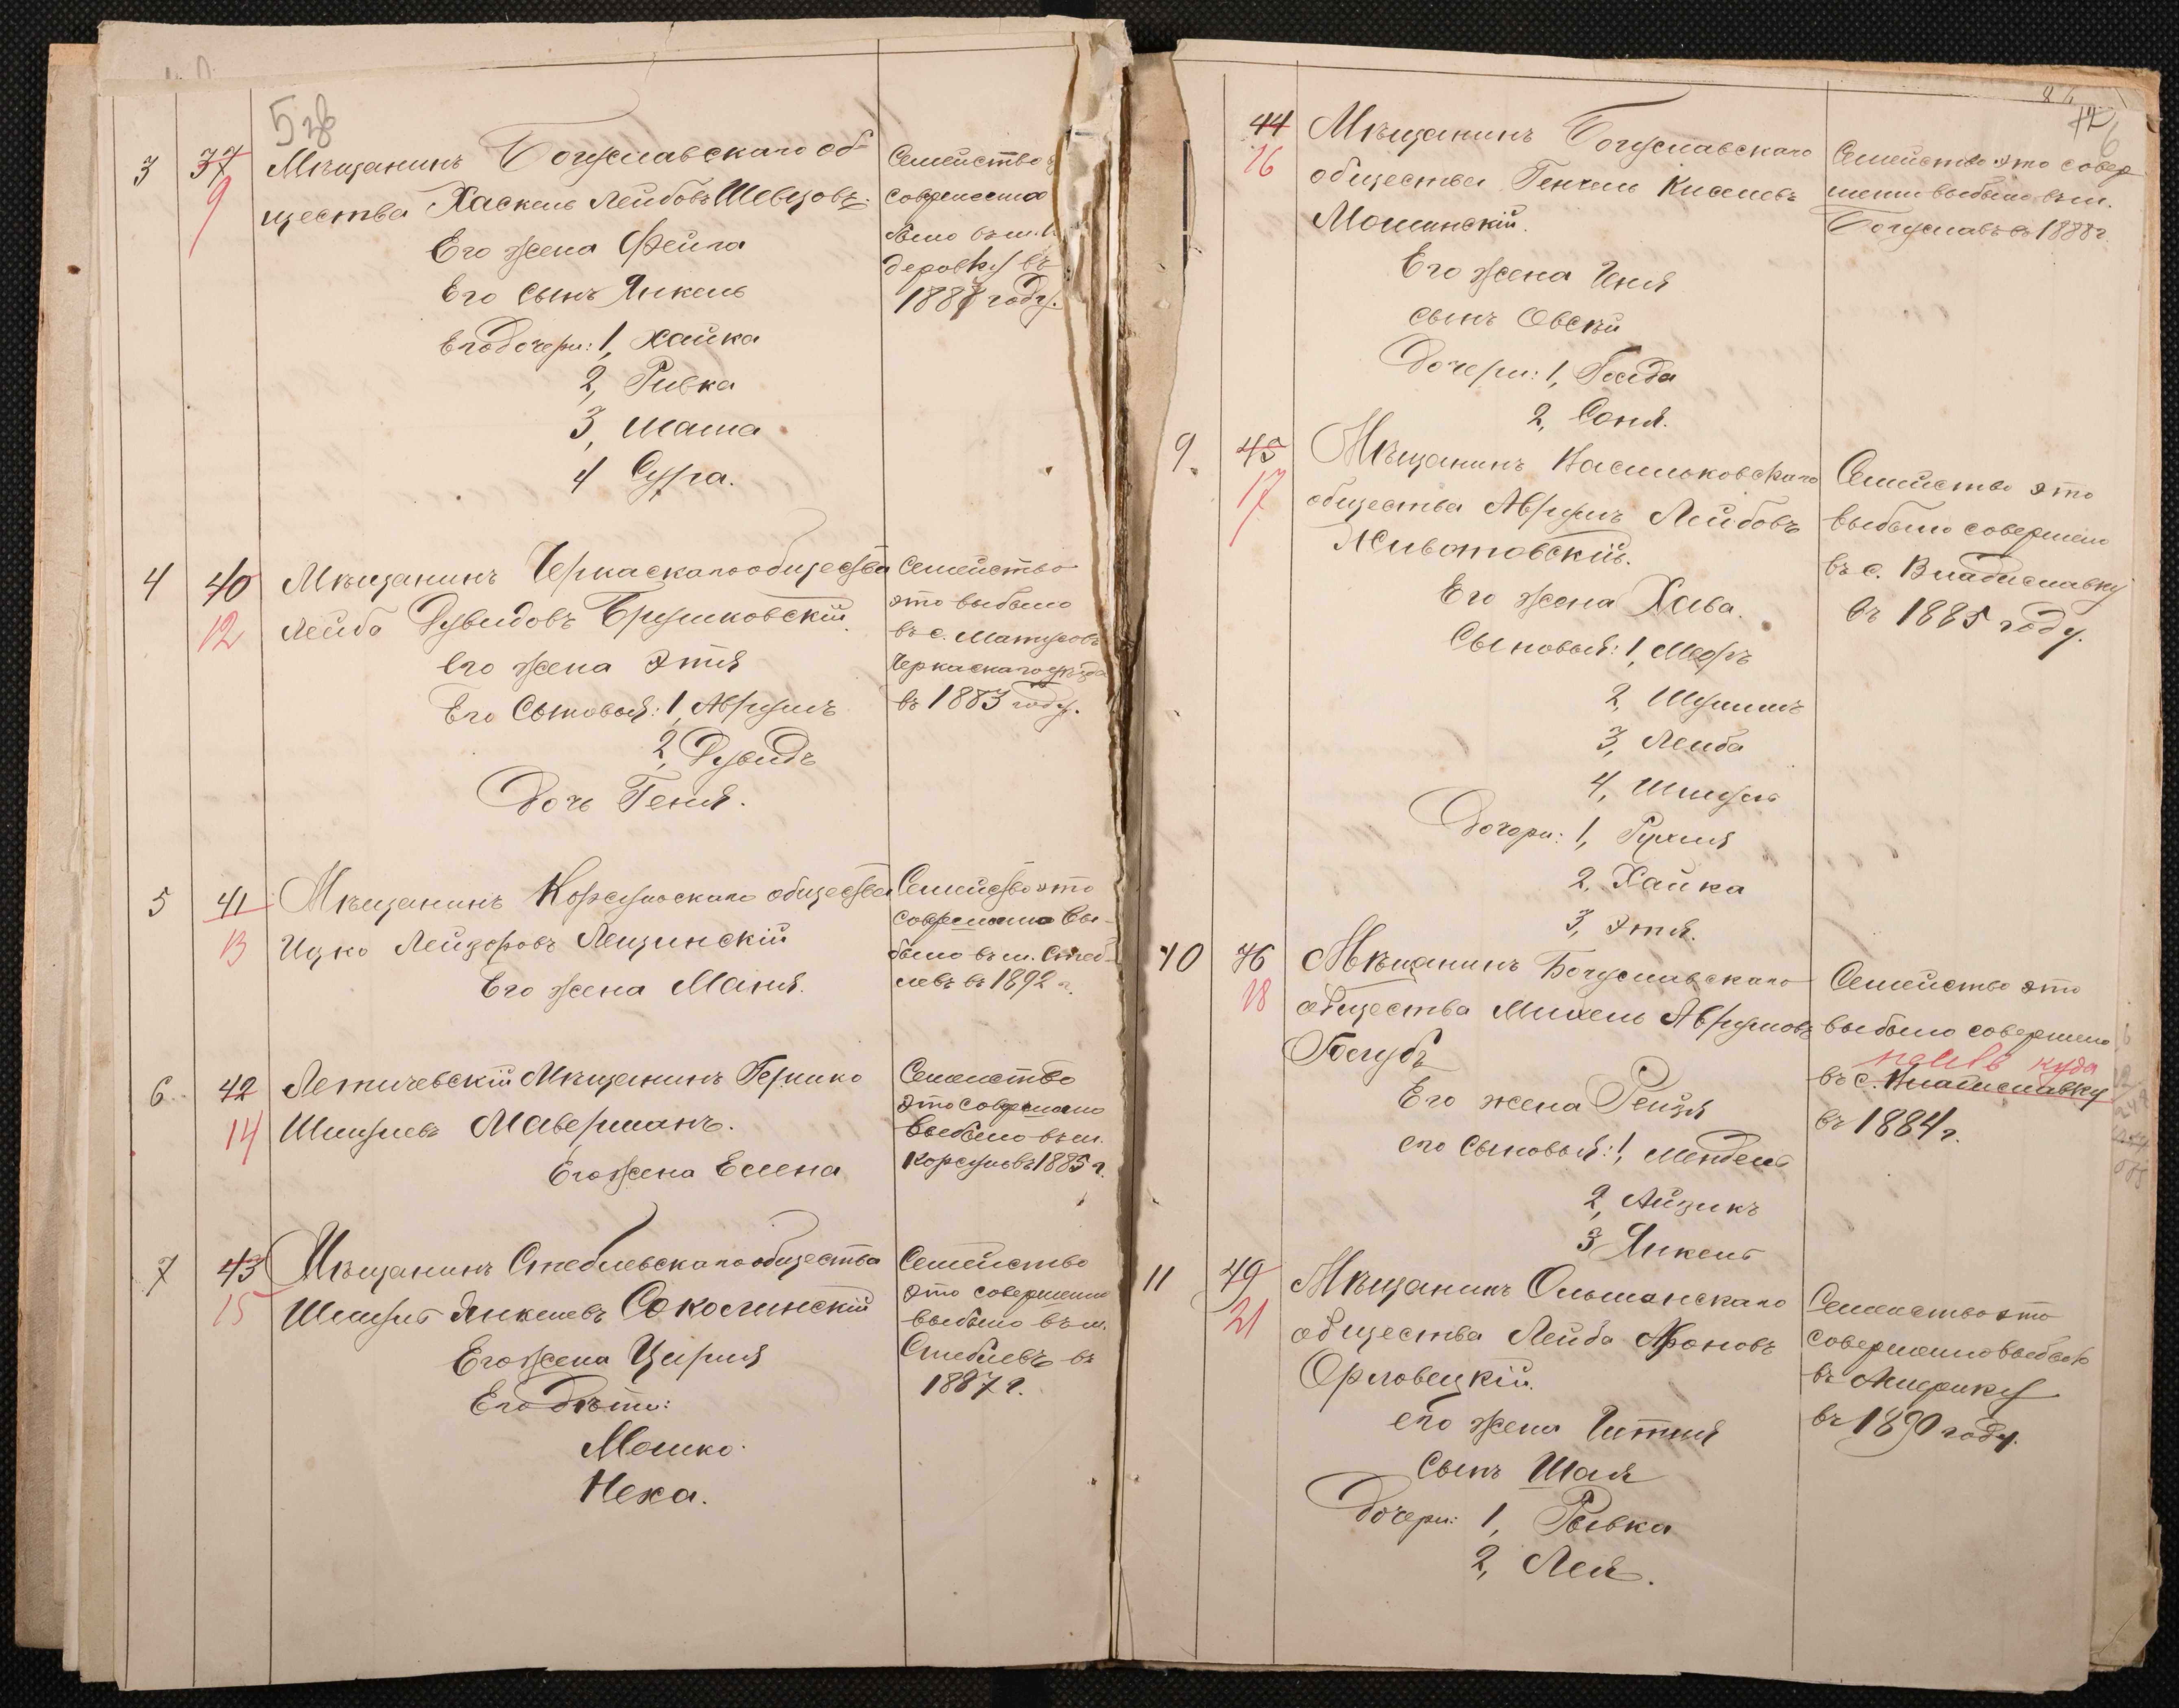 5 об
3 37 Мѣщанинъ Богуславскаго об-
9 щества Хаскель Лейбовъ Шевцовъ.
Его жена Фейга
Его сынъ Янкель
Его дочери: 1, Хайка
2, Ривка
3, Маша
4 Сура.
Семейство
совершенно
было въ м.
деровку въ
1887 году.
4 40 Мѣщанинъ Черкаскаго общества
12 Лейба Дувидовъ Брушковскій.
Его жена Этя
Его Сыновья: 1, Аврумъ
2, Дувидъ
Дочь Геня.
Семейство
это выбыло
въ с. Матусовъ
Черкаскаго уѣзда
въ 1883 году.
5 41 Мѣщанинъ Корсунскаго общества
13 Ицко Лейзоровъ Лещинскій
Его жена Маня.
Семейство это
совершенно вы-
было въ м. Стеб-
левъ въ 1892 г.
6. 42 Летичевскій Мѣщанинъ Гершко
14 Шмулевъ Маверманъ.
Его жена Елена
Семейство
это совершенно
выбыло въ м.
Корсунь въ 1885 г.
7 43 Мѣщанинъ Стеблевскаго общества
15 Шмуль Янкелевъ Соколинскій
Его жена Цирля
Его дѣти:
Мошко.
Неха.
Семейство
это совершенно
выбыло въ м.
Стеблевъ въ
1887 г.
6
44 Мѣщанинъ Богуславскаго
16 общества Генхель Киселевъ
Мошинскій.
Его жена Иня
сынъ Овсѣй
Дочери: 1, Голда
2, Соня.
Семейство это совер
шенно выбыло въ м.
Богуславъ въ 1888 г.
9. 45 Мѣщанинъ Васильковскаго
17 общества Аврумъ Лейбовъ
Животовскій.
Его жена Хава.
Сыновья: 1, Меєръ
2, Шулимъ
3, Лейба
4, Шмуль
Дочери: 1, Рухля
2, Хайка
3, Этя.
Семейство это
выбыло совершенно
въ с. Владиславку
въ 1885 году.
10 46 Мѣщанинъ Богуславскаго
18 общества Михель Аврумовъ
Голубъ
Его жена Рейзя
его Сыновья: 1, Мендель
2, Айзикъ
3 Янкель
Семейство это
выбыло совершенно
куда
въ с. Владиславку
въ 1884 г.
11 49 Мѣщанинъ Ольшанскаго
21 общества Лейба Ароновъ
Орловецкій.
его жена Гитля
Сынъ Шая
Дочери: 1, Рывка
2, Лея.
Семейство это
совершенно выбыло
въ Америку
въ 1890 году.